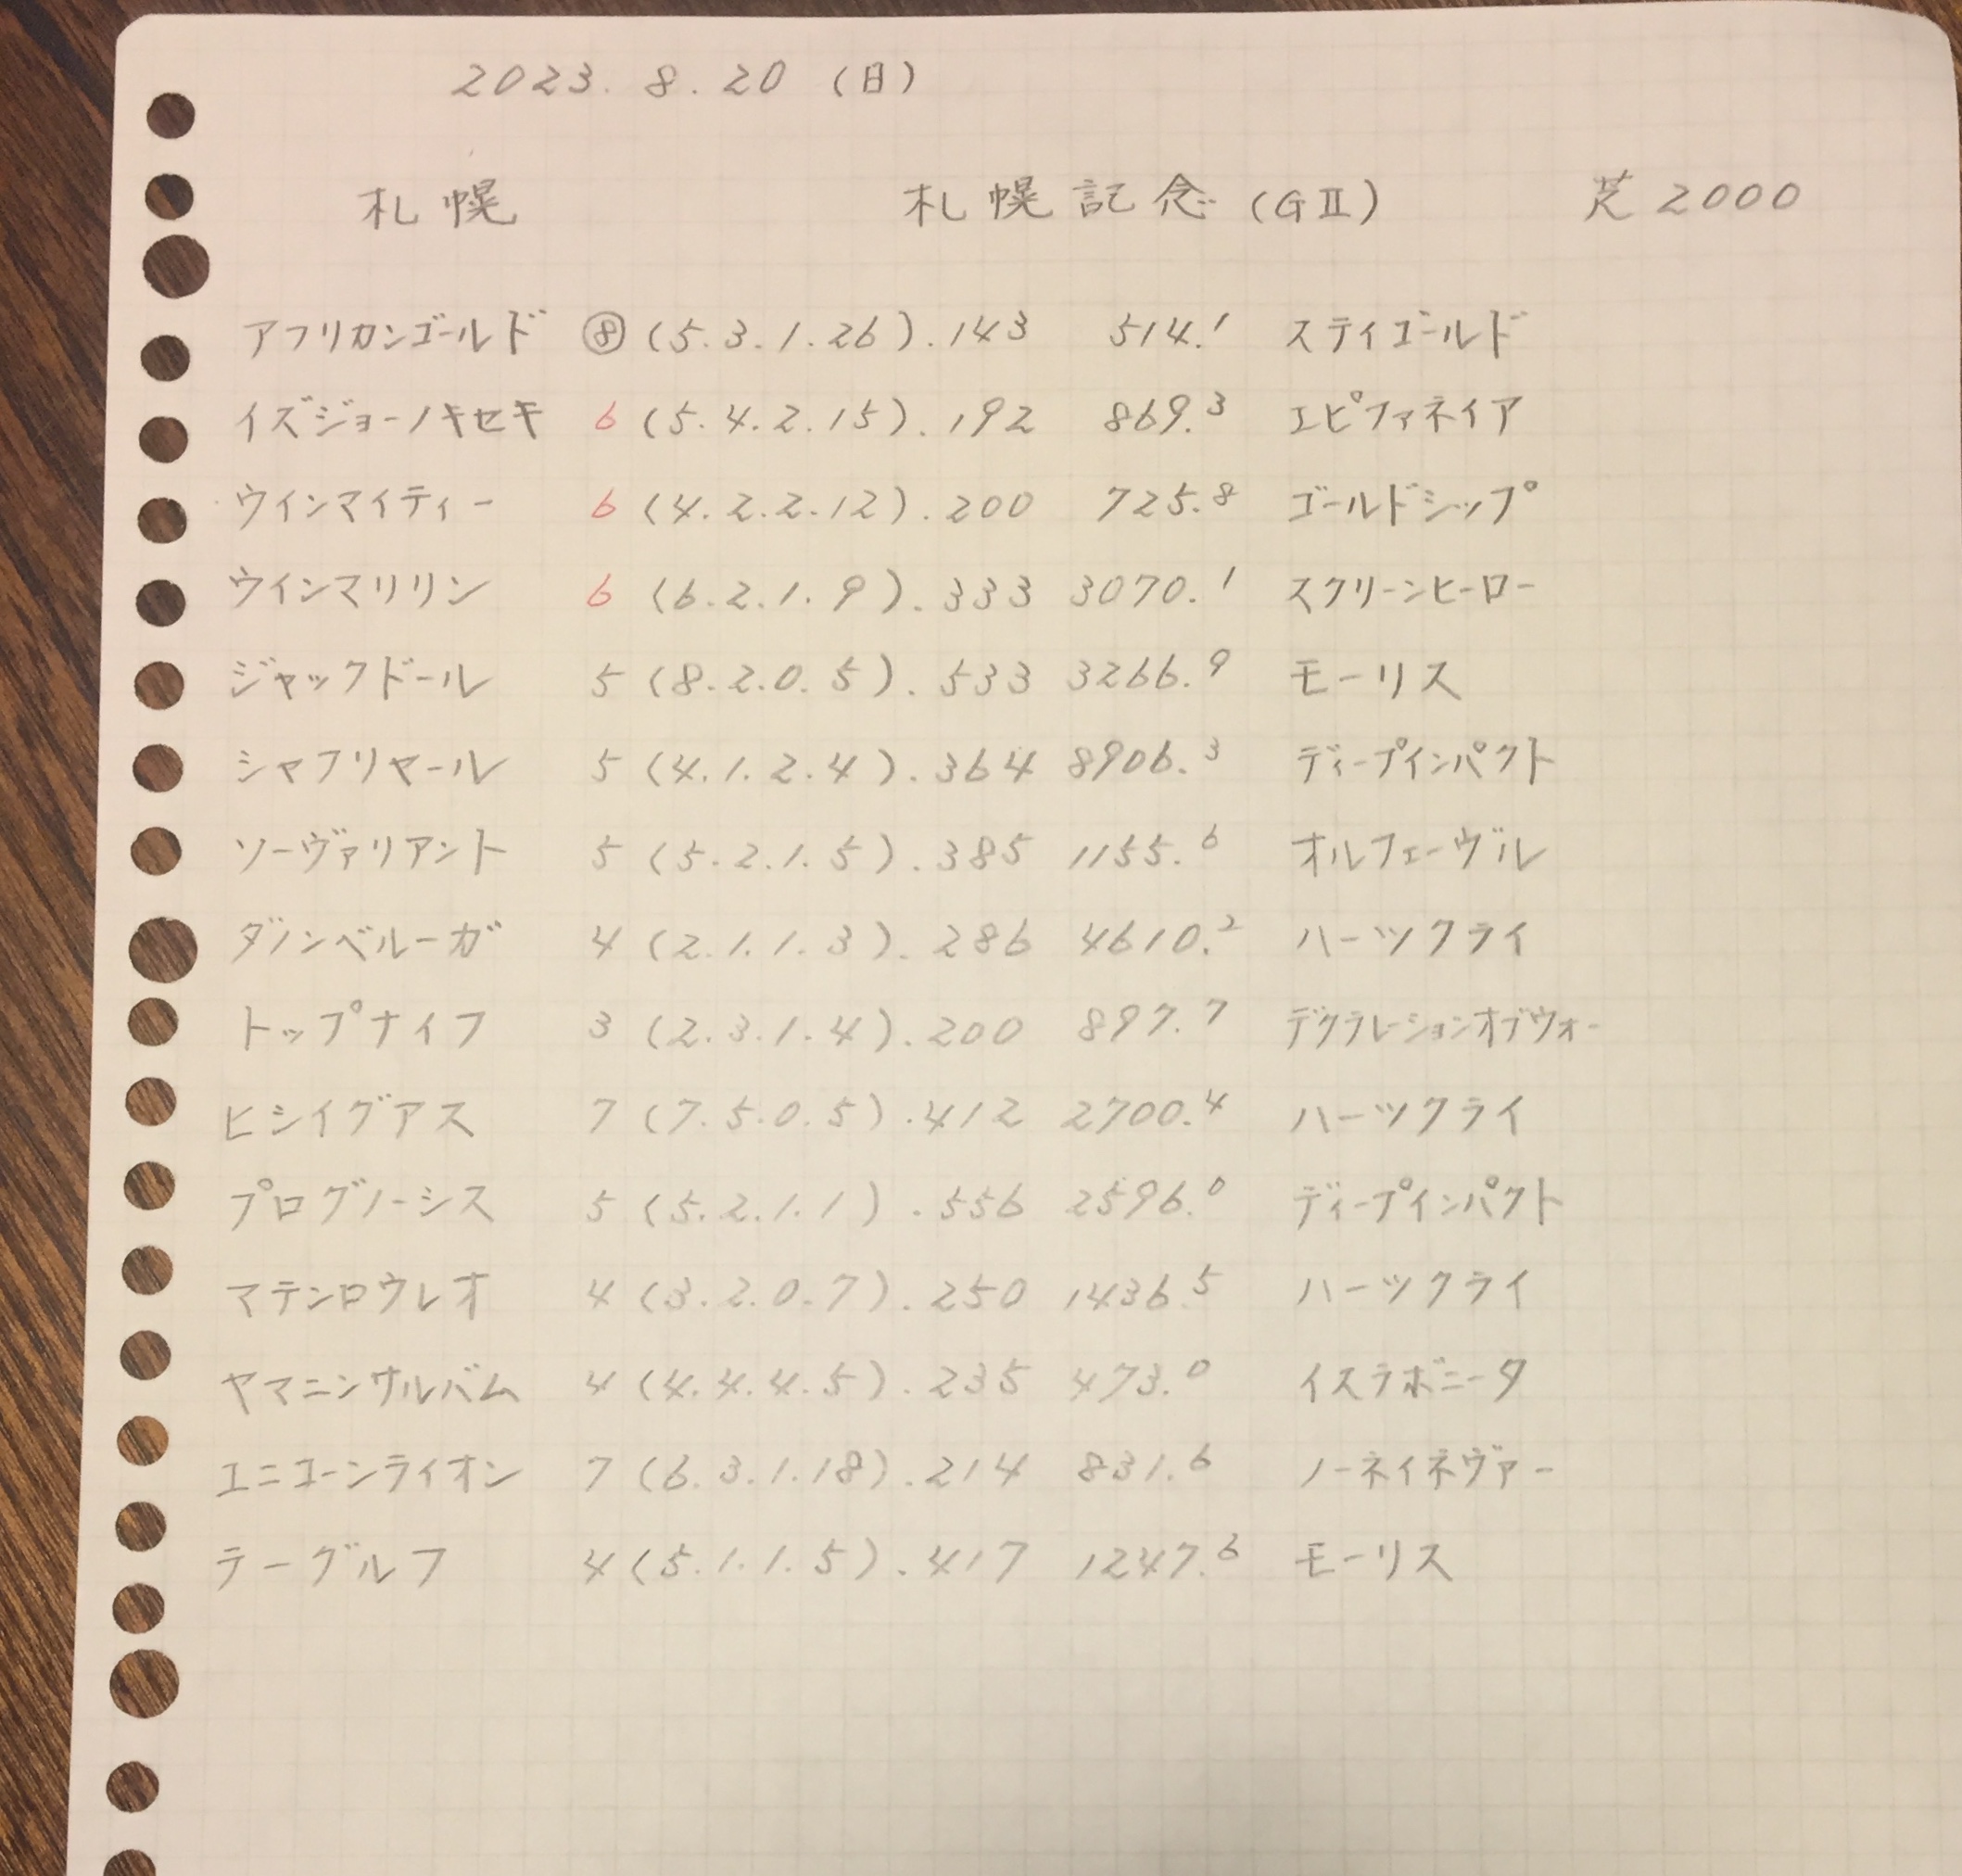 2023. 8. 20 (日)
札幌 札幌記念(GⅡ) 芝2000
アフリカンゴールド ⑧ (5.3.1.26).143 514.1 ステイゴールド
イズジョーノキセキ 6 (5.4.2.15).192 869.3 エピファネイア
ウインマイティー 6 (4.2.2.12).200 725.8 ゴールドシップ
ウインマリリン 6 (6.2.1.9).333 3070.1 スクリーンヒーロー
ジャックドール 5 (8.2.0.5).533 3266.9 モーリス
シャフリヤール 5 (4.1.2.4).364 8906.3 ディープインパクト
ソーヴァリアント 5 (5.2.1.5).385 1155.6 オルフェーヴル
ダノンベルーガ 4 (2.1.1.3).286 4610.2 ハーツクライ
トップナイフ 3 (2.3.1.4).200 897.7 デクラレーションオブウォー
ヒシイグアス 7 (7.5.0.5).412 2700.4 ハーツクライ
プログノーシス 5 (5.2.1.1).556 2596.0 ディープインパクト
マテンロウレオ 4 (3.2.0.7).250 1436.5 ハーツクライ
ヤマニンサルバム 4 (4.4.4.5).235 473.0 イスラボニータ
ユニコーンライオン 7 (6.3.1.18).214 831.6 ノーネイネヴァー
ラーグルフ 4 (5.1.1.5).417 1247.6 モーリス